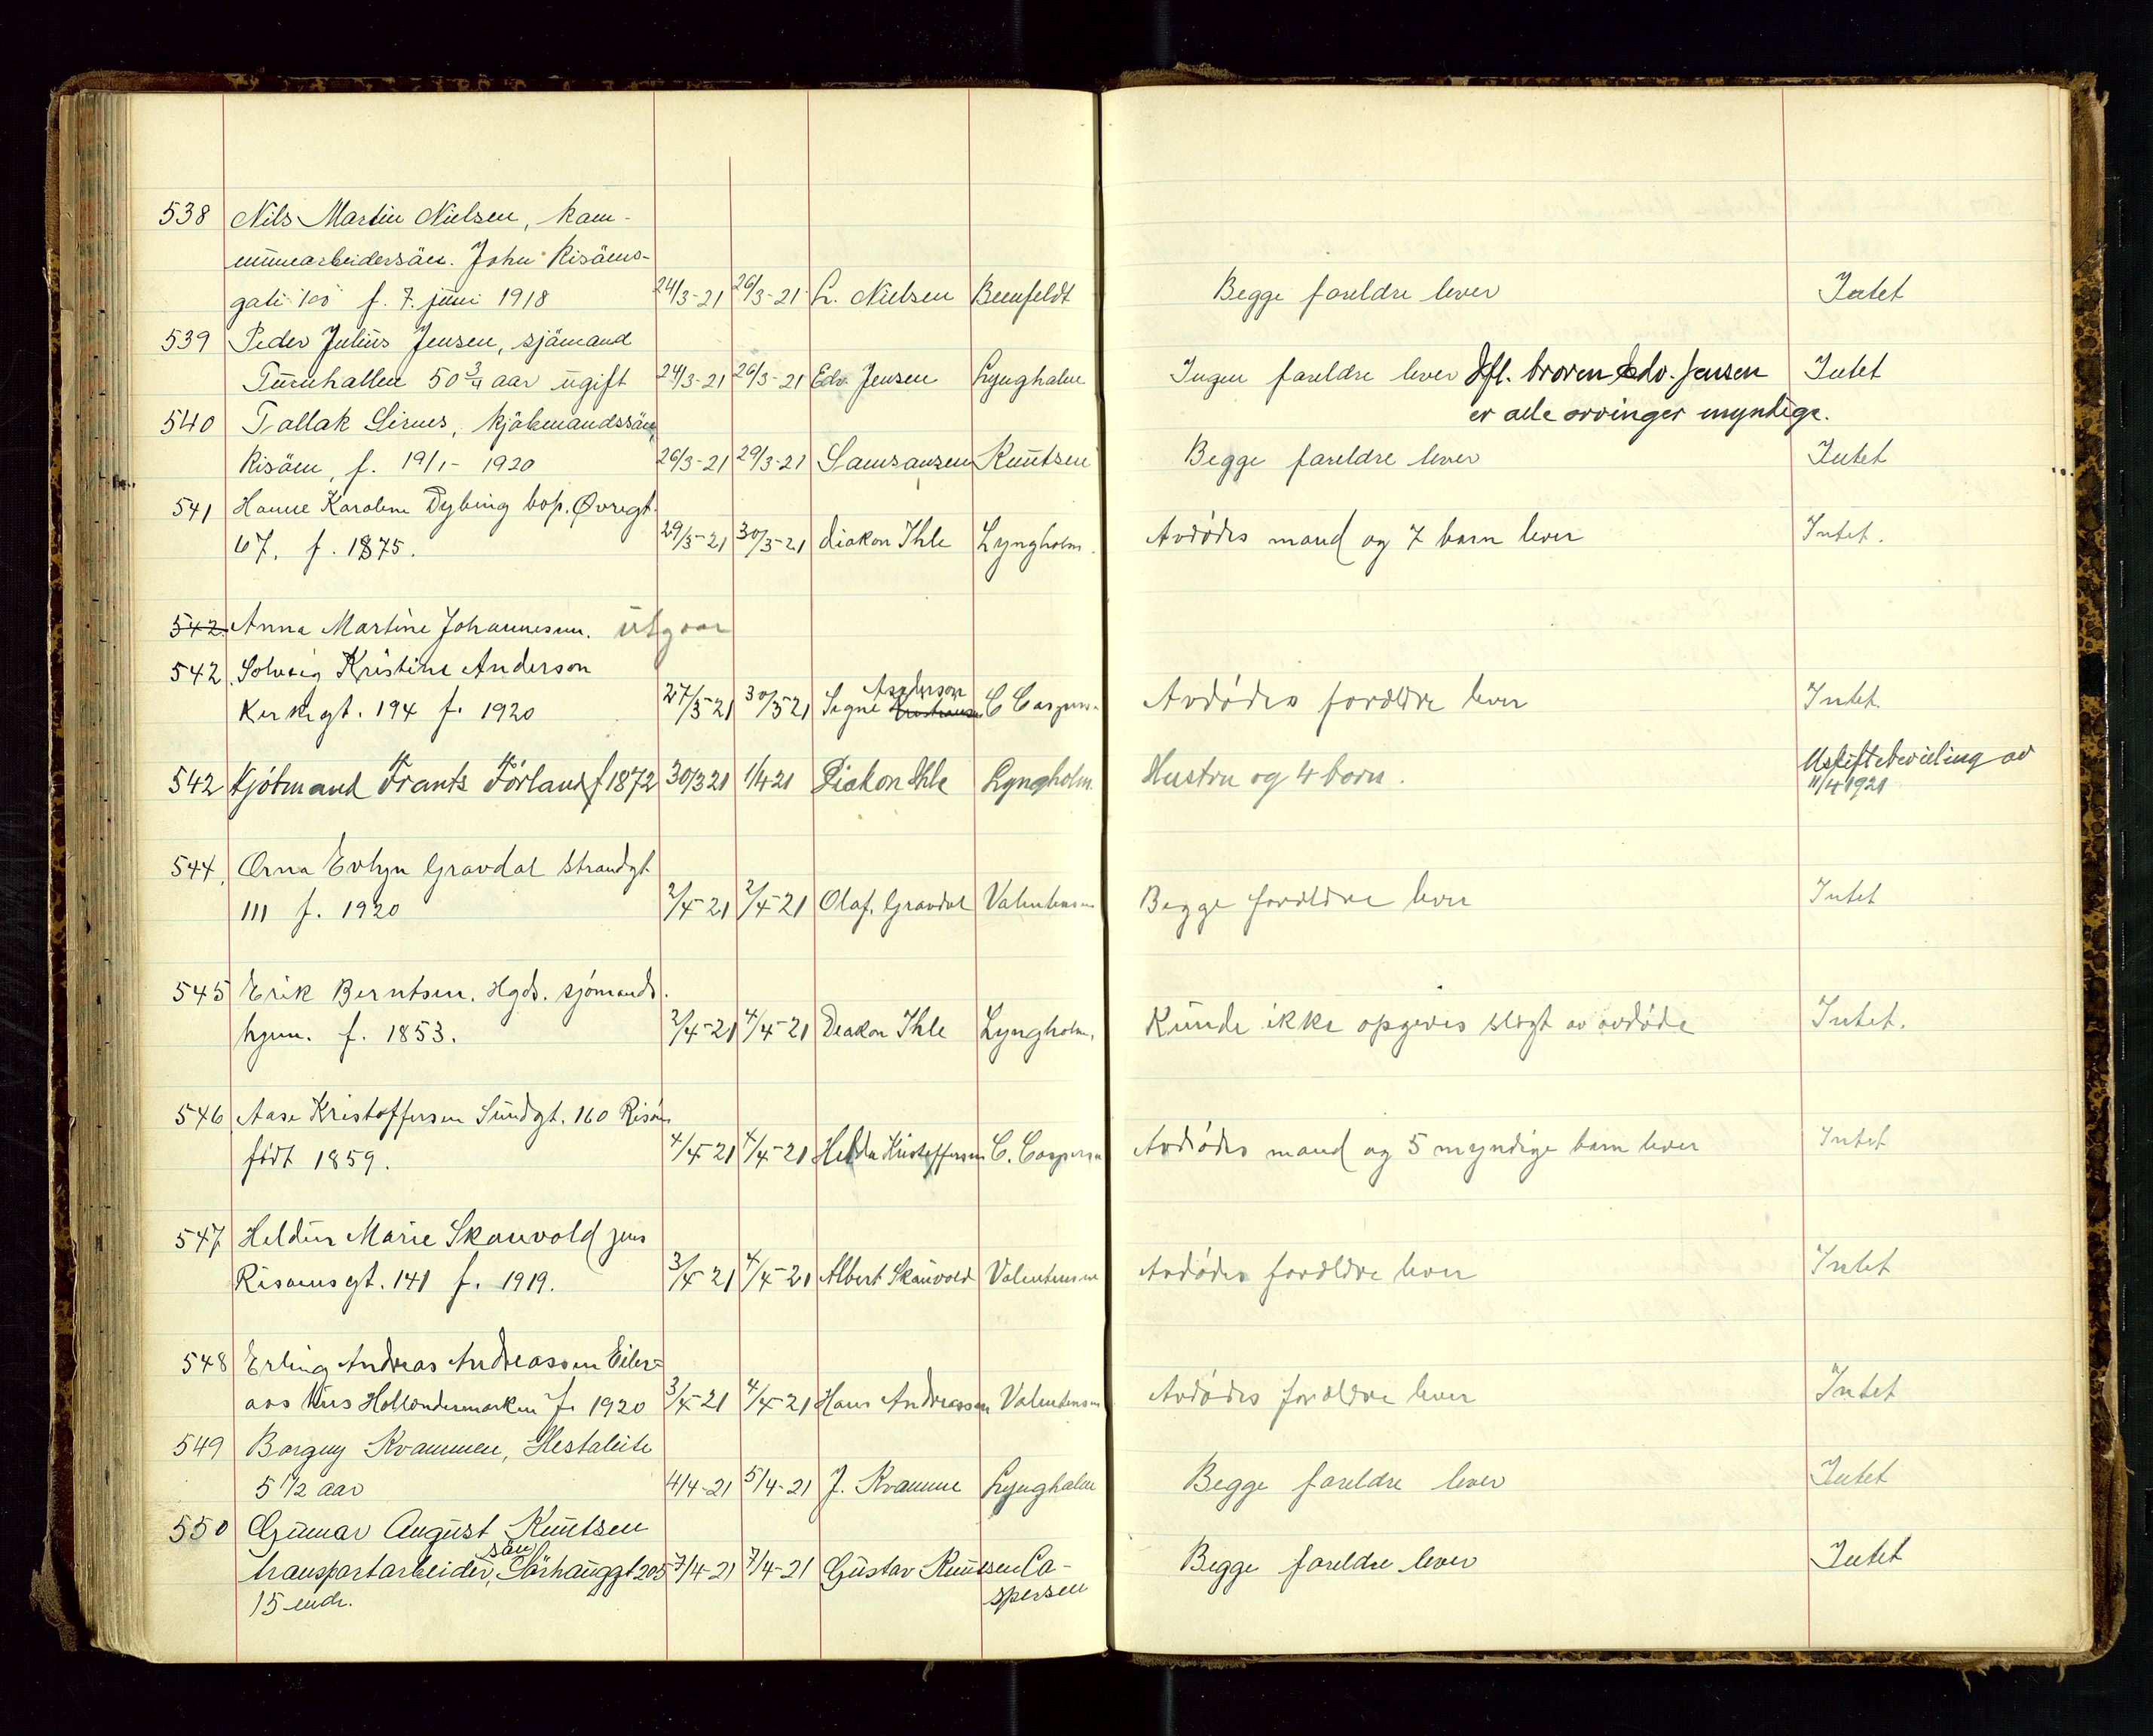 538 Nils Martin Nielsen, kom-
munearbeidersön. John Risöens-
gate 100 f. 7. juni 1918 24/3-21 26/3-21 L. Nielsen Benfeldt Begge foreldre lever Intet
539 Peder Julius Jensen, sjömand
Turnhallen 50 3/4 aar ugift 24/3-21 26/3-21 Edv. Jensen Lyngholm Ingen foreldre lever Ifl. broren Edv. Jensen Intet
er alle arvinger myndige.
540 Tallak Lirnes, kjöbmandssön,
Risöen, f. 19/1- 1920 26/3-21 29/3-21 Samsonsen Knutsen Begge foreldre lever Intet
541 Hanne Karoline Dybing bop. Øvregt.
67, f. 1875. 29/3-21 30/3-21 diakon Ihle Lyngholm. Avdødes mand og 7 barn lever Intet.
542 Anna Martine Johannesen. utgaar
542 Solveig Kristine Anderson
Kirkegt. 194 f. 1920 27/3 21 30/3 21 Signe Kristiansen Anderson C Caspers. Avdødes forældre lever Intet.
542 Kjøbmand Frants Förland f 1872 30/3 21 1/4 21 Diakon Ihle Lyngholm. Hustru og 4 barn. Uskiftebevilling av
11/4 1921
544, Orna Evlyn Gravdal Strandgt
111 f. 1920 2/4-21 2/4-21 Olaf. Gravdal Valentinsen Begge forældre lever Intet
545 Erik Berntsen. Hgds. sjømands.
hjem. f. 1853. 2/4-21 4/4-21 Deakon Ihle Lyngholm. Kunde ikke opgives slegt av avdøde Intet.
546 Aase Kristoffersen Sundgt. 160 Risøen
født 1859. 4/4-21 4/4-21 Helda Kristoffersen C. Caspersen Avdødes mand og 5 myndige barn lever Intet
547 Heldur Marie Skauvold jens
Risoensgt. 141 f. 1919. 3/4-21 4/4-21 Albert Skauvold Valentinsen Avdødes forældre lever Intet
548 Erling Andreas Andreassen Eiler-
aas hus Hollendermarken f. 1920 3/4-21 4/4-21 Hans Andreassen Valentinsen Avdødes forældre lever Intet
549 Borgny Kvammen, Hestaleite
5 1/2 aar 4/4-21 5/4-21 J. Kvamme Lyngholm Begge foreldre lever Intet
550 Gunnar August Knutsen
transportarbeider sön, Sörhauggt 205 7/4-21 7/4-21 Gustav Knutsen Ca- Begge foreldre lever Intet
15 mdr. spersen